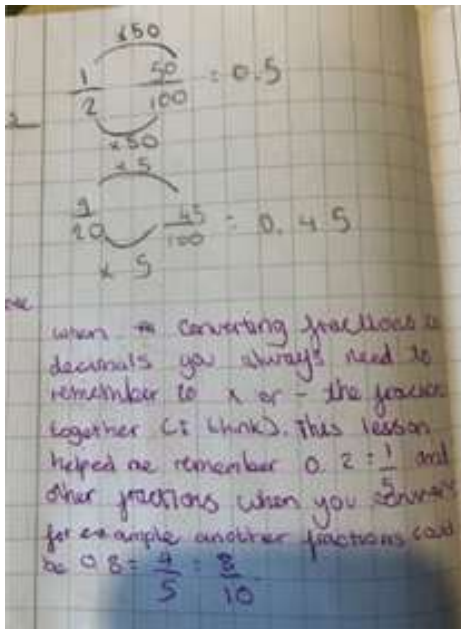 x50
1/2 50/100 = 0.5
x50
x 5
9/20 45/100 = 0.45
x 5
when converting fractions to
decimals you always need to
remember to x or - the fraction
together (I think). This lesson
helped me remember 0.2 = 1/5 and
other fractions when you
for example another fractions could
be 0.8 = 4/5 = 8/10